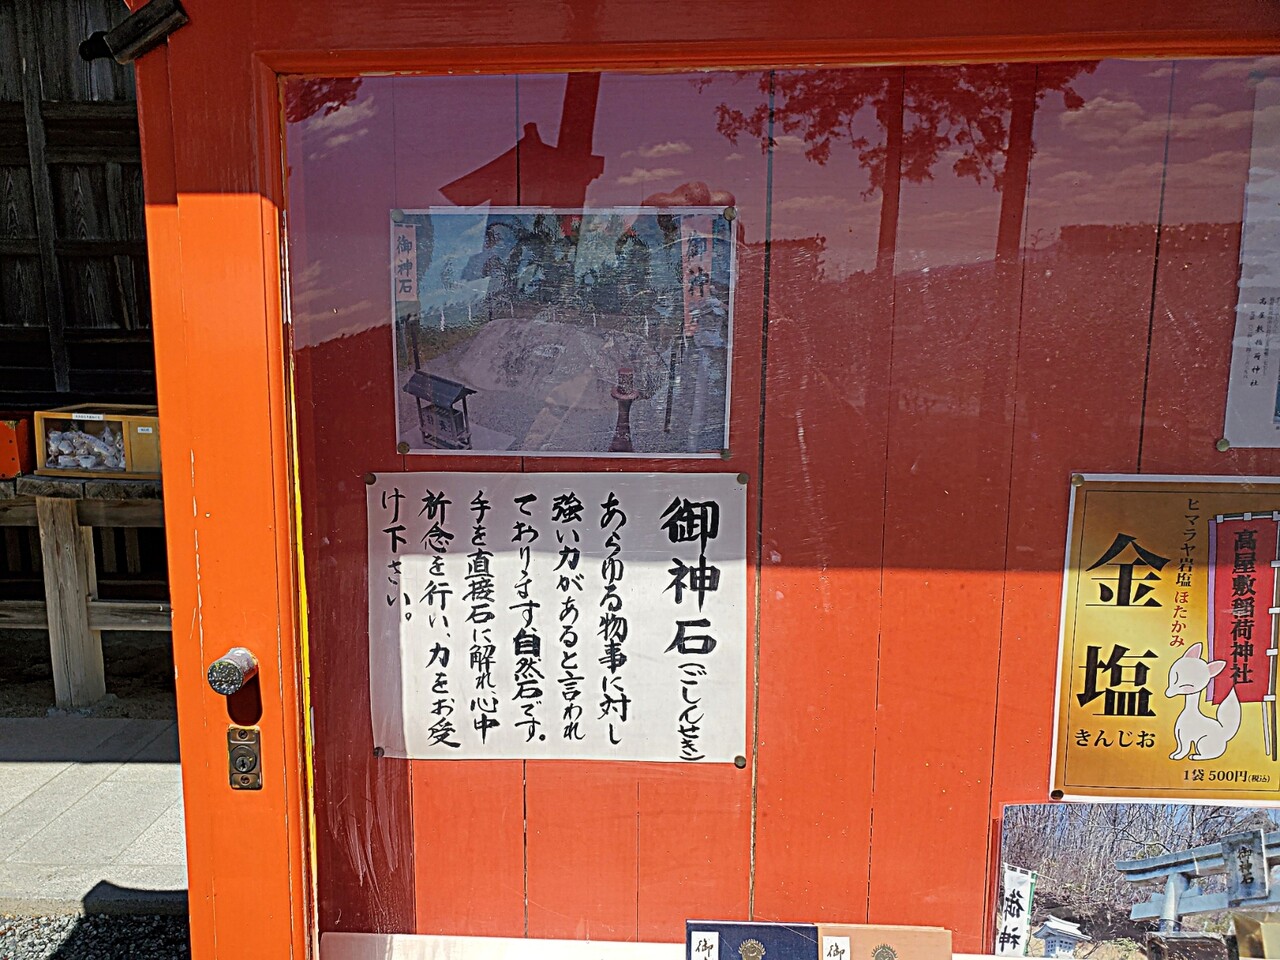 御神石
御神
御神石(ごしんせき)
あらゆる物事に対し
強い力があると言われ
ております、自然石です。
手を直接石に解れ、心中
祈念を行い、力をお受
け下さい。
高屋敷稲荷神社
ヒマラヤ岩塩 ほたかみ
金塩
きんじお
高屋敷稲荷神社
1袋 500円(税込)
御神石
御神
御
御